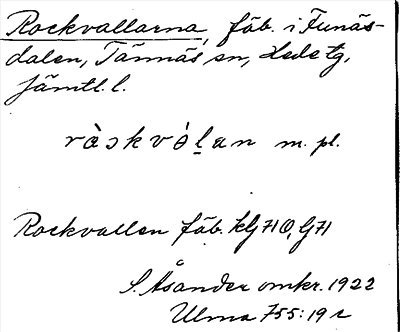 Rockvallarna, fäb. i Funäs-
dalen, Tännäs sn, Hede tg,
Jämtl. l.
ràɔkvòḷan m. pl.
Rockvallen fäb. kG 71 Ö, G 71
S. Åsander omkr. 1922
Ulma 755:19 s